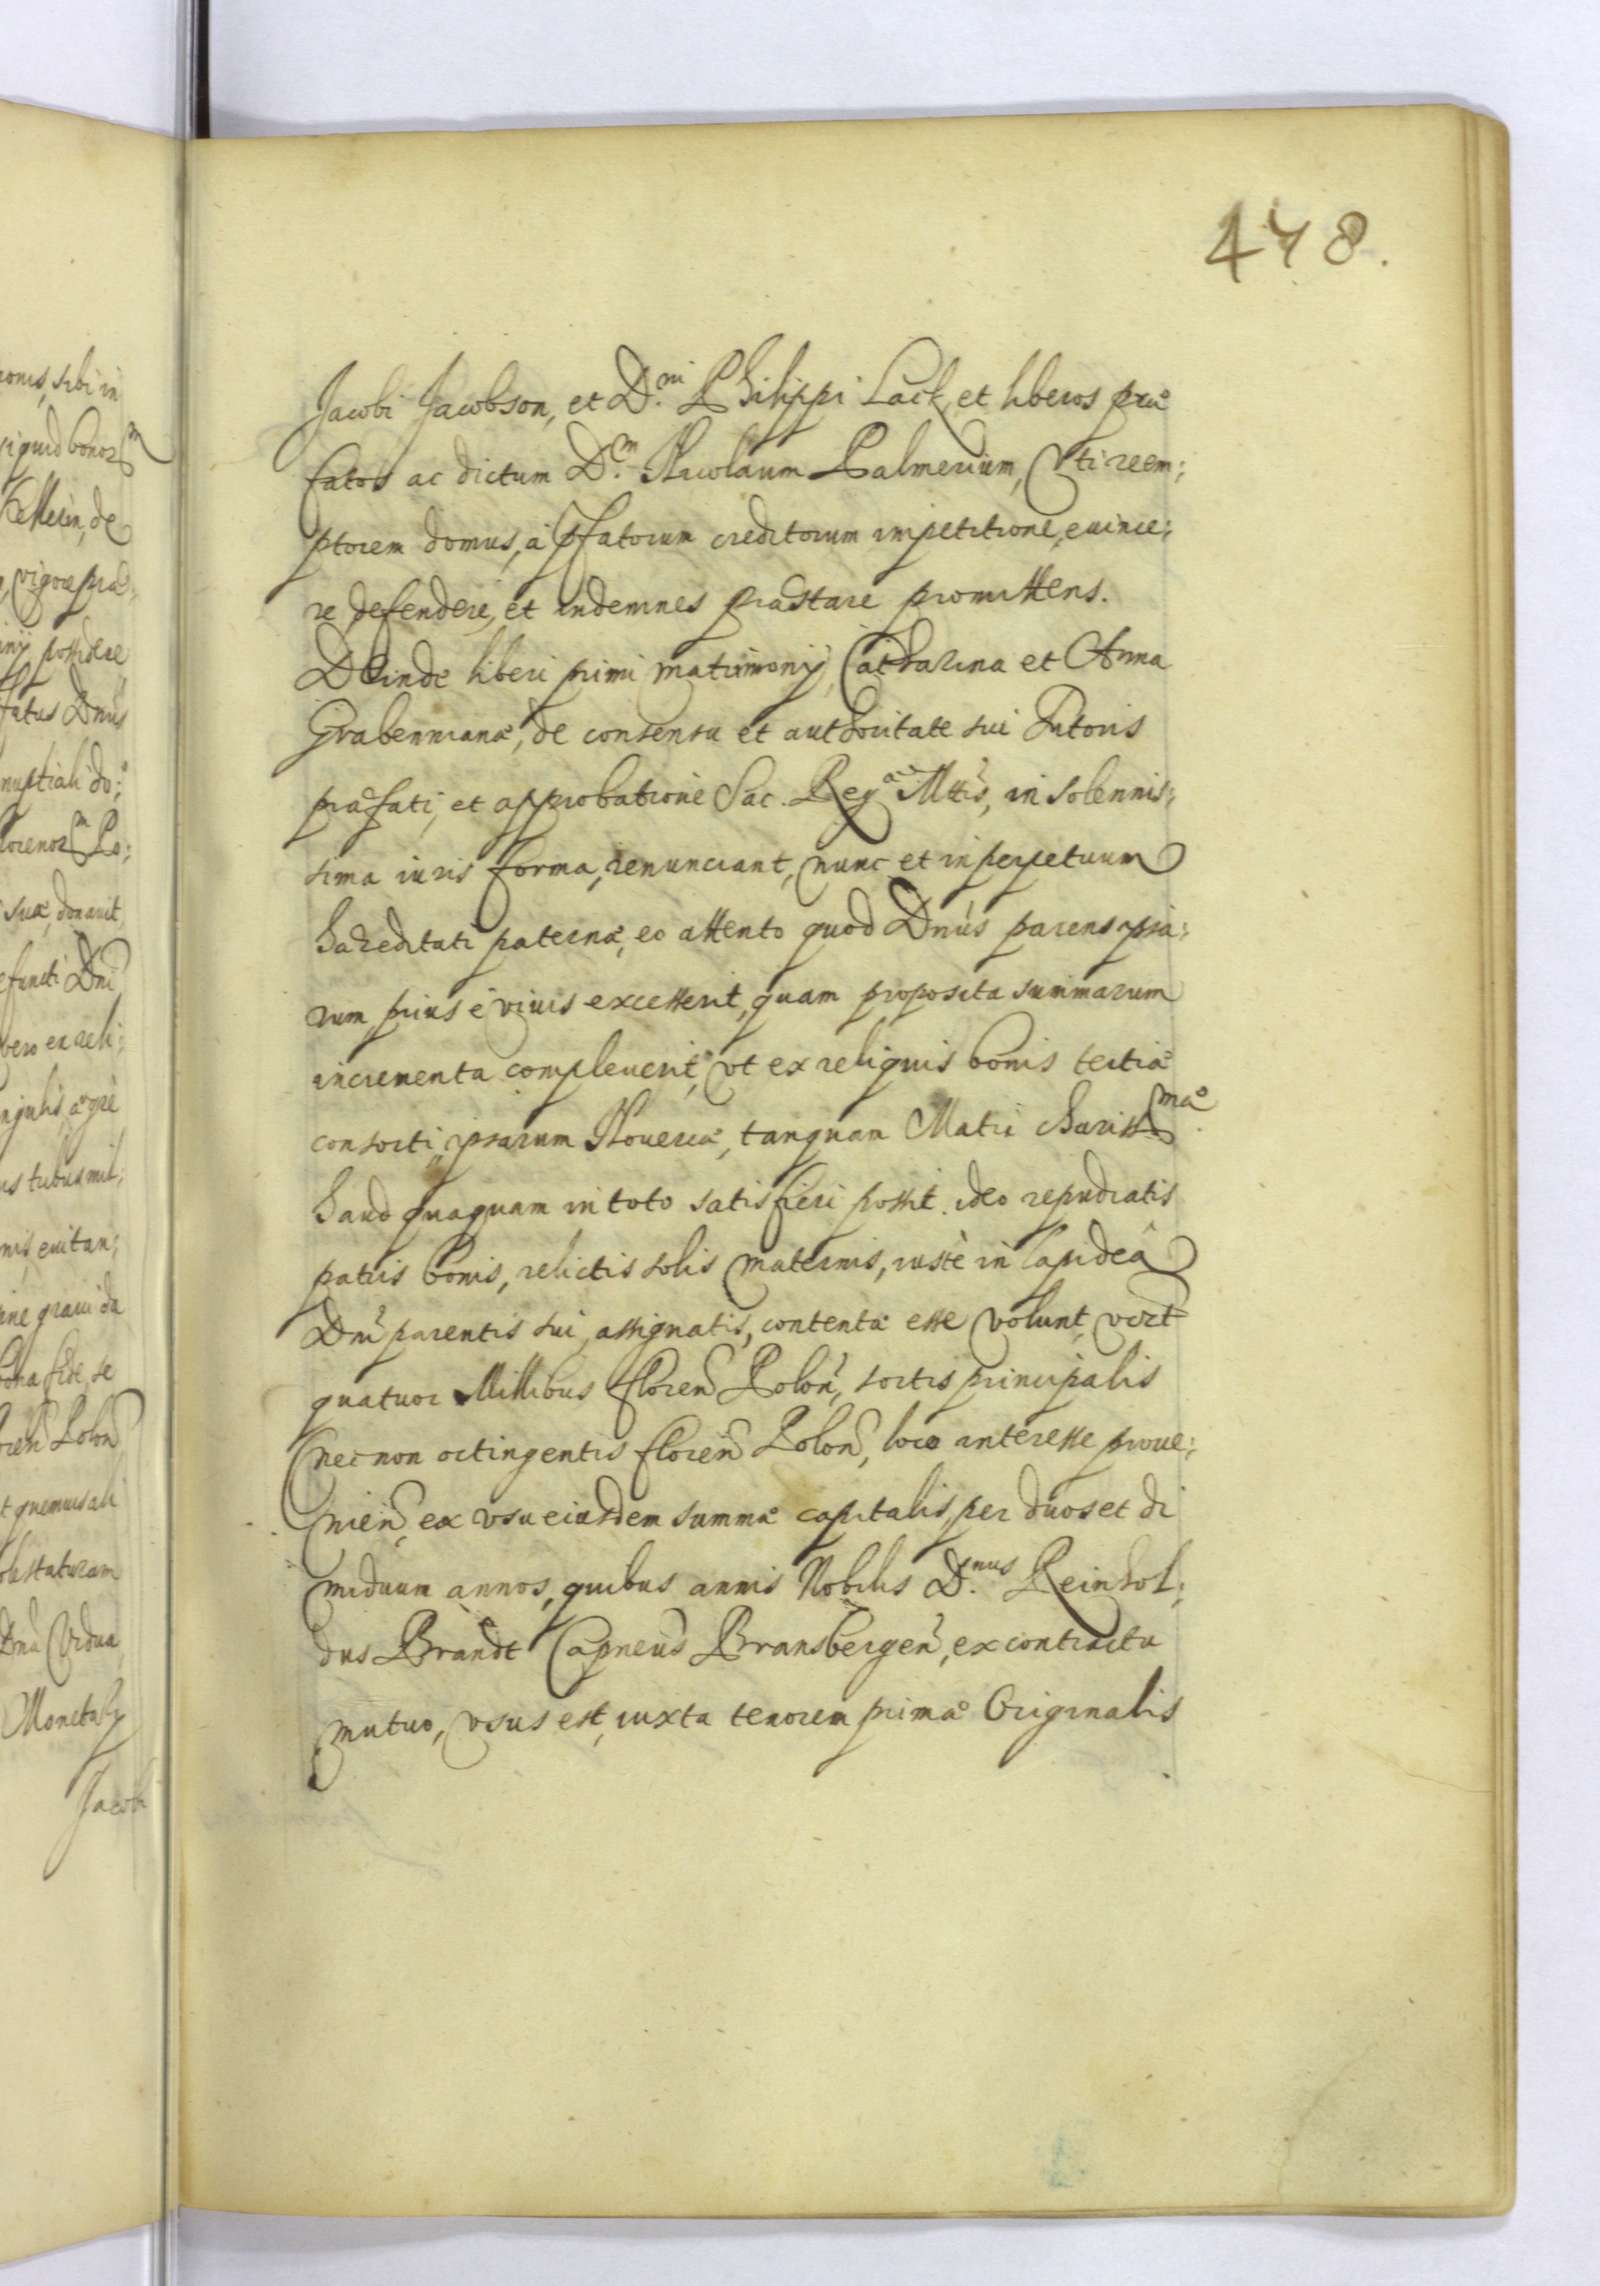 478.
Jacobi Jacobson, et D.ni Philippi Lack, et liberos præ
fatos ac dictum D.m Nicolaum Palmerium, uti reem;
ptorem domus, à pfatorum creditorum impetitione, euince;
re defendere, et indemnes præstare promittens.
Deinde liberi primi matrimonij, Catharina et Anna
Grabennianæ, de consensu et authoritate sui Tutoris
præfati, et approbatione Sac. Reg.æ Mttis, in solennis;
sima iuris forma, renunciant, nunc et in perpetuum
hæreditati paternæ, eo attento quod Dnus parens ipsa;
rum prius è viuis excesserit, quam proposita summarum
incrementa compleuerit, vt ex reliquis bonis tertiæ
consorti, ipsarum Nouercæ, tanquam Matri chariss.mæ
haud quaquam in toto satisfieri possit. ideo repudiatis
patriis bonis, relictis solis maternis, iustè in lapideâ
Dni parentis sui, assignatis, contentæ esse volunt, vizt
quatuor Millibus floren Polon, sortis principalis
necnon octingentis floren Polon, loco interesse proue;
nien, ex vsu eiusdem summæ capitalis, per duos et di
miduum annos, quibus annis Nobilis D.nus Reinhol;
dus Brandt Capneus Bransbergen, ex contractu
mutuo, vsus est, iuxta tenorem primæ Originalis
onis, sibi in
iquid bonor m
de
vigore præ;
possidere
fatus Dnus
nuptiali do;
lorenor m Po;
suæ, donauit
efuncti Dni
vero ex reli;
ngulis, ægrè
us tribus mil;
nis, euitan;
ine grauida
bona fide, se
oren Polon
t quemuis ali
Dna Vidua
Monetaly
Jacobi